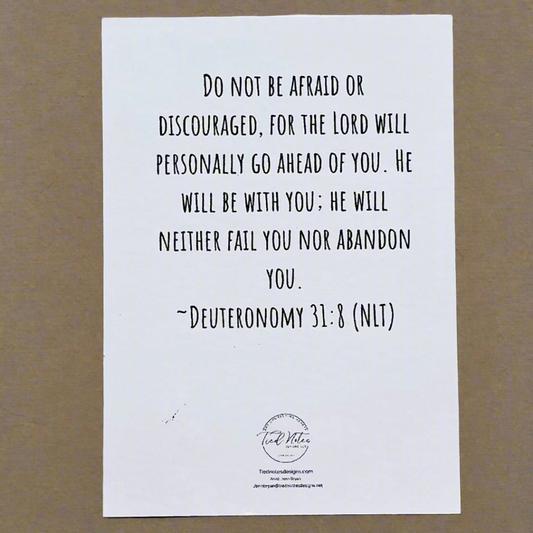 Do not be afraid or
discouraged, for the Lord will
personally go ahead of you. He
will be with you; he will
neither fail you nor abandon
you.
~Deuteronomy 31:8 (NLT)
Tied Notes
Tiednotesdesigns.com
Jenn Bryan